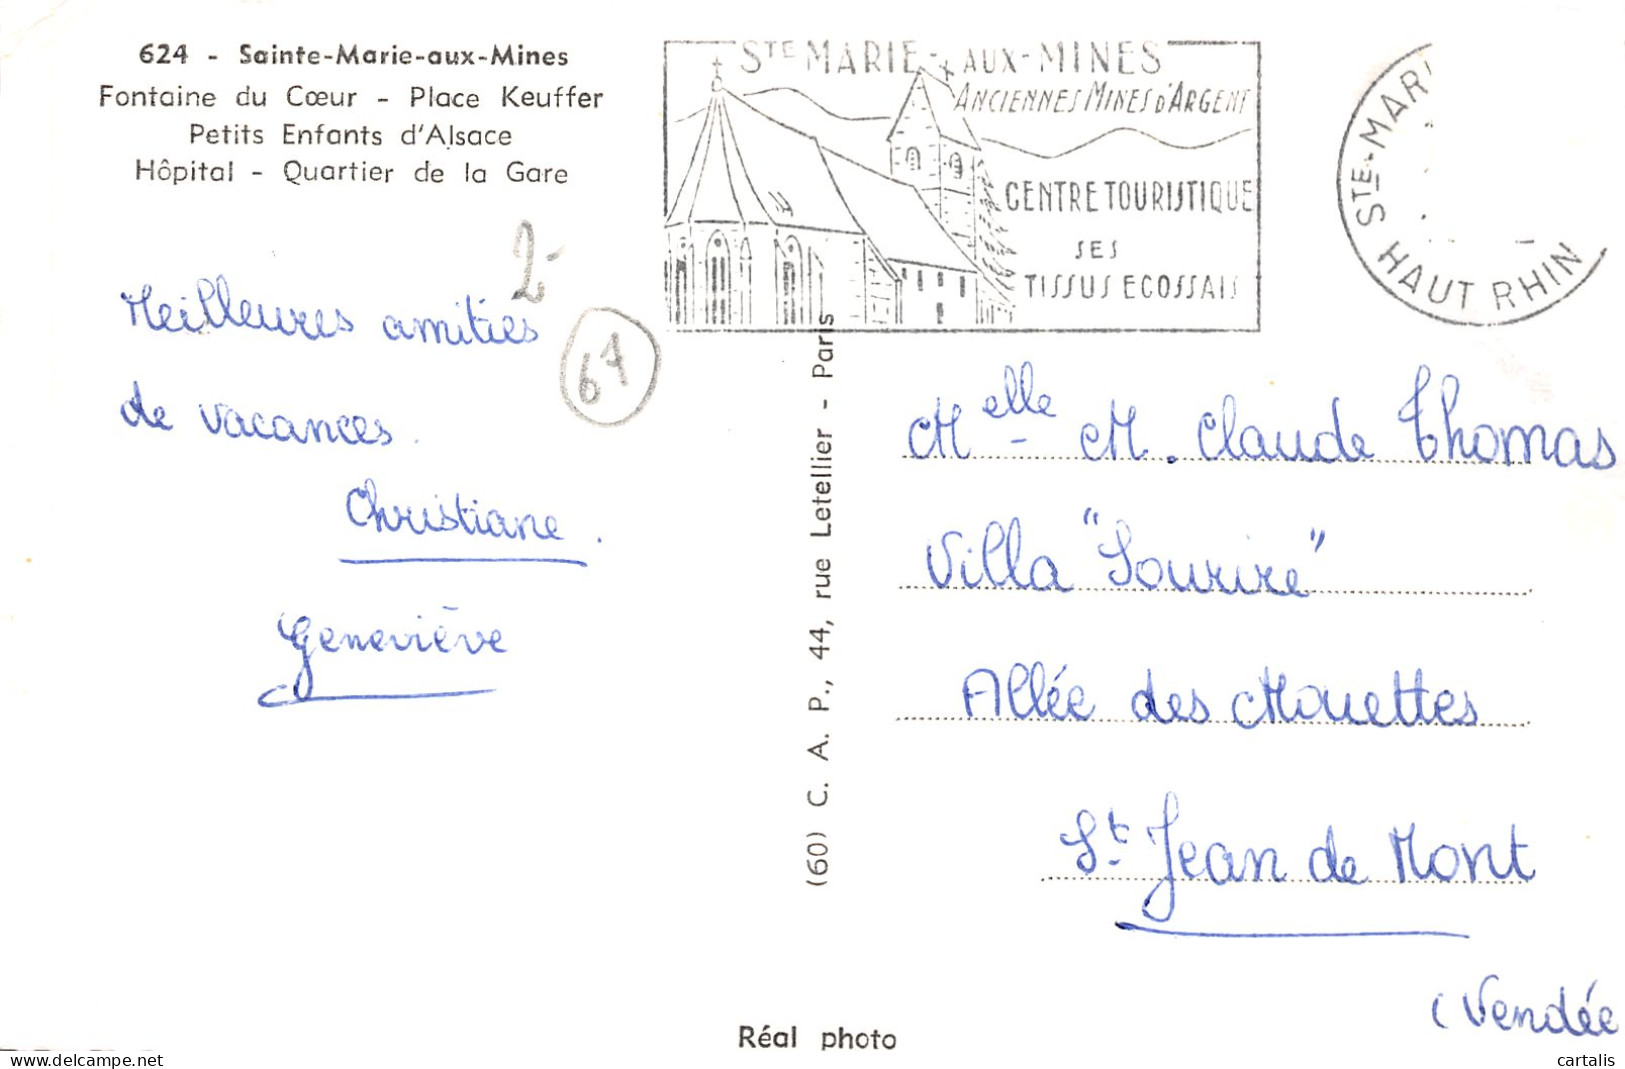 624 - Sainte-Marie-aux-Mines
Fontaine du Cœur - Place Keuffer
Petits Enfants d'Alsace
Hôpital - Quartier de la Gare
STE MARIE-AUX-MINES
ANCIENNES MINES D'ARGENT
CENTRE TOURISTIQUE
SES
TISSUS ECOSSAIS
STE-MARI
HAUT RHIN
2-
67
Meilleures amitiés
de vacances.
Christiane.
Geneviève
(60) C. A. P., 44, rue Letellier - Paris
Melle M. Claude Thomas
Villa "Sourire"
Allée des Mouettes
St. Jean de Mont
(Vendée
Réal photo
cartalis